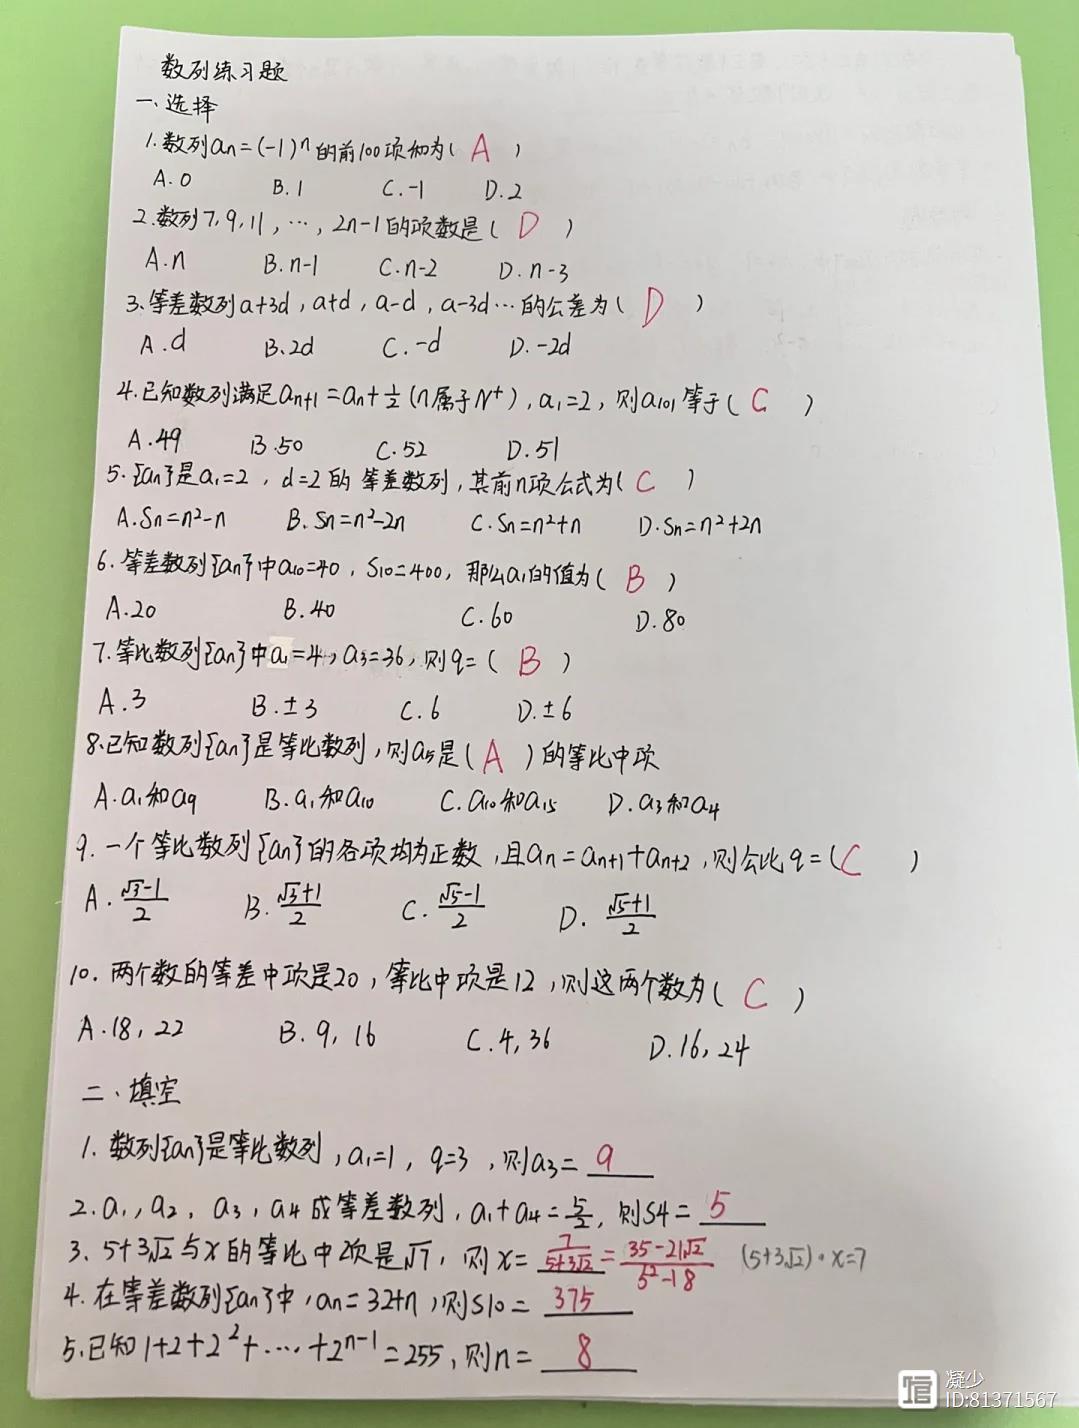 数列练习题
一、选择
1.数列an=(-1)ⁿ的前100项和为( A )
A.0 B.1 C.-1 D.2
2.数列7,9,11,…,2n-1的项数是( D )
A.n B.n-1 C.n-2 D.n-3
3.等差数列a+3d,a+d,a-d,a-3d…的公差为( D )
A.d B.2d C.-d D.-2d
4.已知数列满足an+1=an+1/2(n属于N⁺),a1=2,则a101等于( C )
A.49 B.50 C.52 D.51
5.{an}是a1=2,d=2的等差数列,其前n项公式为( C )
A.Sn=n²-n B.Sn=n²-2n C.Sn=n²+n D.Sn=n²+2n
6.等差数列{an}中a10=40,S10=400,那么a1的值为( B )
A.20 B.40 C.60 D.80
7.等比数列{an}中a1=4,a3=36,则q=( B )
A.3 B.±3 C.6 D.±6
8.已知数列{an}是等比数列,则a5是( A )的等比中项
A.a1和a9 B.a1和a10 C.a10和a15 D.a3和a4
9.一个等比数列{an}的各项均为正数,且an=an+1+an+2,则公比q=( C )
A.(√3-1)/2 B.(√3+1)/2 C.(√5-1)/2 D.(√5+1)/2
10.两个数的等差中项是20,等比中项是12,则这两个数为( C )
A.18,22 B.9,16 C.4,36 D.16,24
二、填空
1.数列{an}是等比数列,a1=1,q=3,则a3=9
2.a1,a2,a3,a4成等差数列,a1+a4=5/2,则S4=5
3.5+3√2与x的等比中项是√7,则x=7/(5+3√2)=(35-21√2)/(5²-18) (5+3√2)·x=7
4.在等差数列{an}中,an=32+n,则S10=375
5.已知1+2+2²+…+2ⁿ⁻¹=255,则n=8
凝少
ID:81371567